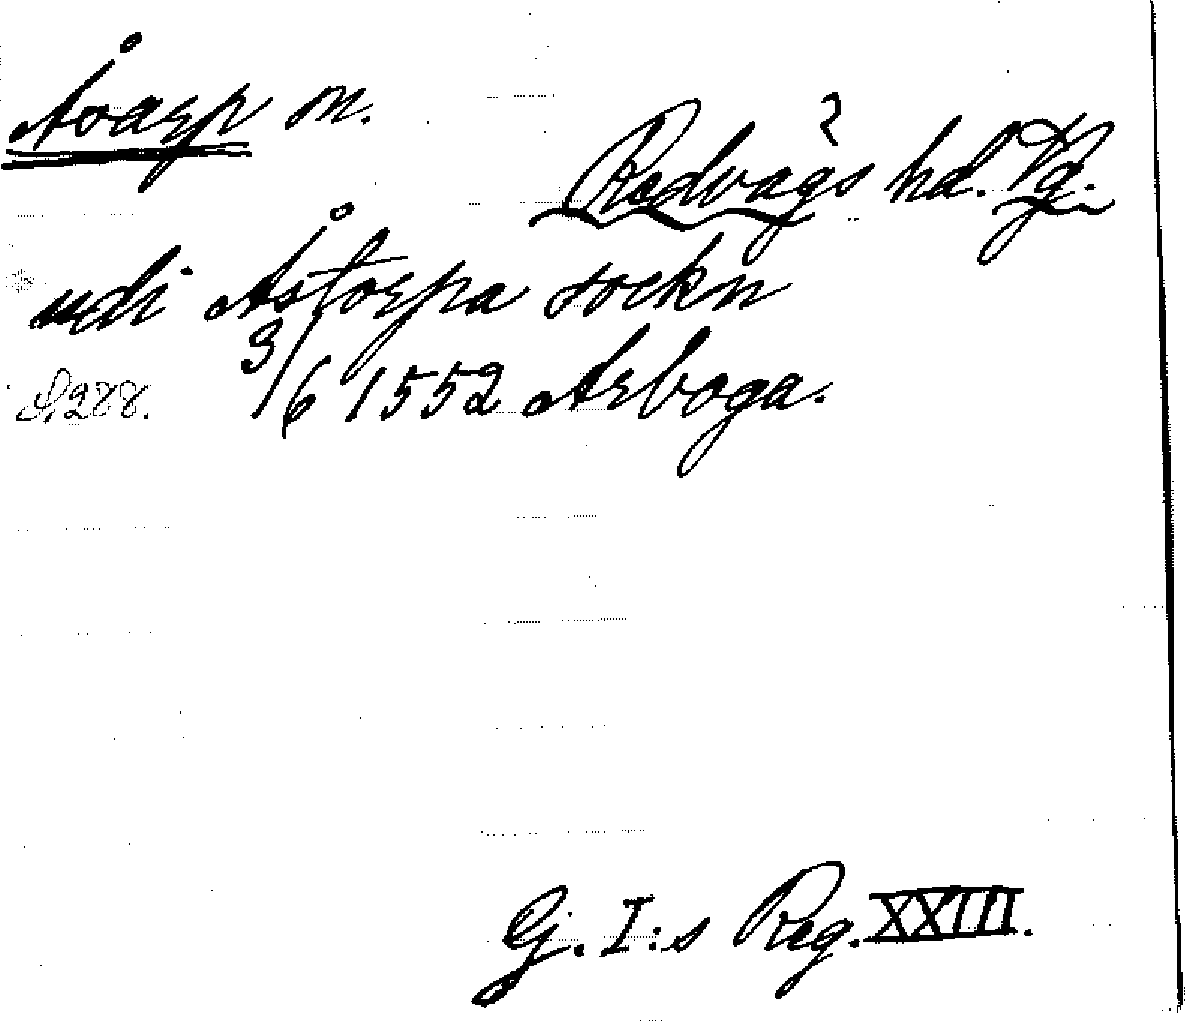 Åvarp sn.
?
Redvägs hd. Vg.
udi Åstorpa sockn
S. 288. 3/6 1552 Arboga.
G. I:s Reg. XXIII.